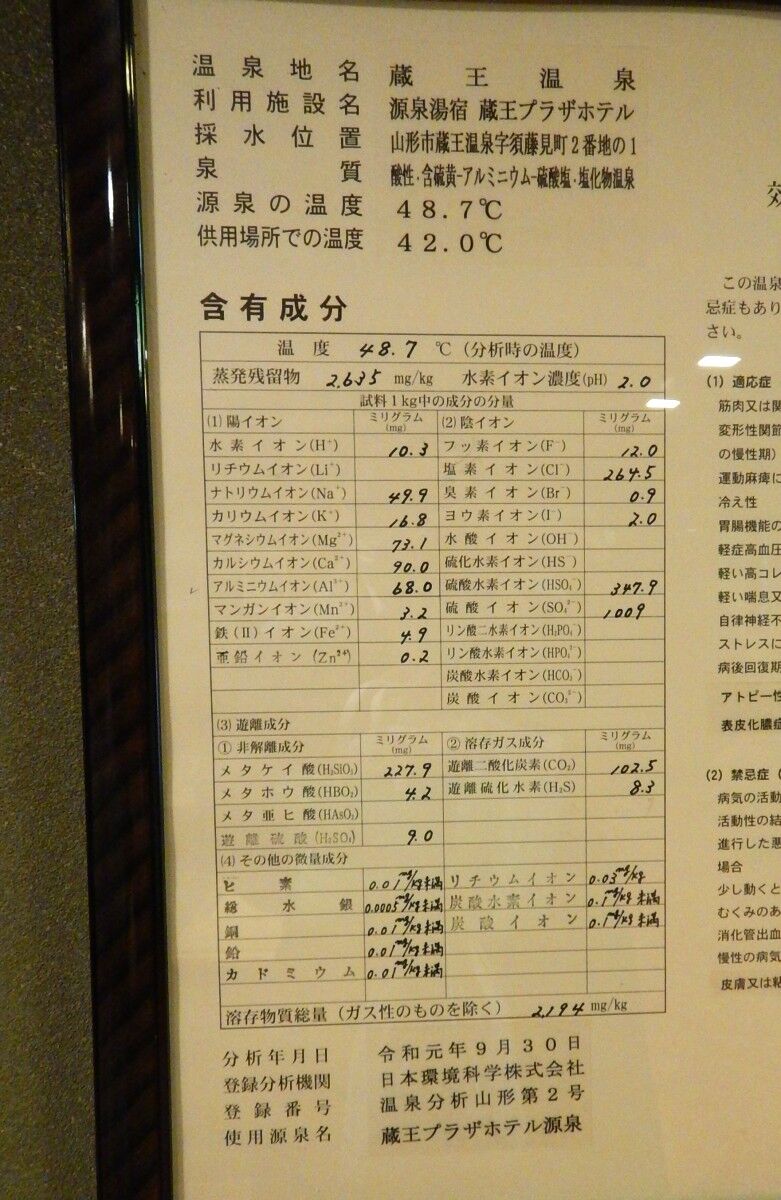 温泉地名 蔵王温泉
利用施設名 源泉湯宿 蔵王プラザホテル
採水位置 山形市蔵王温泉字須藤見町2番地の1
泉質 酸性・含硫黄-アルミニウム-硫酸塩・塩化物温泉
源泉の温度 48.7℃
供用場所での温度 42.0℃
含有成分
温度 48.7 ℃(分析時の温度)
蒸発残留物 2,635 mg/kg 水素イオン濃度(pH) 2.0
試料1kg中の成分の分量
(1)陽イオン ミリグラム(mg) (2)陰イオン ミリグラム(mg)
水素イオン(H⁺) 10.3 フッ素イオン(F⁻) 12.0
リチウムイオン(Li⁺) 塩素イオン(Cl⁻) 264.5
ナトリウムイオン(Na⁺) 49.9 臭素イオン(Br⁻) 0.9
カリウムイオン(K⁺) 16.8 ヨウ素イオン(I⁻) 2.0
マグネシウムイオン(Mg²⁺) 73.1 水酸イオン(OH⁻)
カルシウムイオン(Ca²⁺) 90.0 硫化水素イオン(HS⁻)
アルミニウムイオン(Al³⁺) 68.0 硫酸水素イオン(HSO₄⁻) 347.9
マンガンイオン(Mn²⁺) 3.2 硫酸イオン(SO₄²⁻) 1009
鉄(II)イオン(Fe²⁺) 4.9 リン酸二水素イオン(H₂PO₄⁻)
亜鉛イオン(Zn²⁺) 0.2 リン酸水素イオン(HPO₄²⁻)
炭酸水素イオン(HCO₃⁻)
炭酸イオン(CO₃²⁻)
(3)遊離成分
①非解離成分 ミリグラム(mg) ②溶存ガス成分 ミリグラム(mg)
メタケイ酸(H₂SiO₃) 227.9 遊離二酸化炭素(CO₂) 102.5
メタホウ酸(HBO₂) 4.2 遊離硫化水素(H₂S) 8.3
メタ亜ヒ酸(HAsO₂)
遊離硫酸(H₂SO₄) 9.0
(4)その他の微量成分
ヒ素 0.01mg/kg未満 リチウムイオン 0.03mg/kg
総水銀 0.0005mg/kg未満 炭酸水素イオン 0.1mg/kg未満
銅 0.01mg/kg未満 炭酸イオン 0.1mg/kg未満
鉛 0.01mg/kg未満
カドミウム 0.01mg/kg未満
溶存物質総量(ガス性のものを除く) 2,194 mg/kg
分析年月日 令和元年9月30日
登録分析機関 日本環境科学株式会社
登録番号 温泉分析山形第2号
使用源泉名 蔵王プラザホテル源泉
効
この温泉
忌症もあり
さい。
(1) 適応症
筋肉又は関
変形性関節
の慢性期)
運動麻痺に
冷え性
胃腸機能の
軽症高血圧
軽い高コレ
軽い喘息又
自律神経不
ストレスに
病後回復期
アトピー性
表皮化膿症
(2) 禁忌症(
病気の活動
活動性の結
進行した悪
場合
少し動くと
むくみのあ
消化管出血
慢性の病気
皮膚又は粘